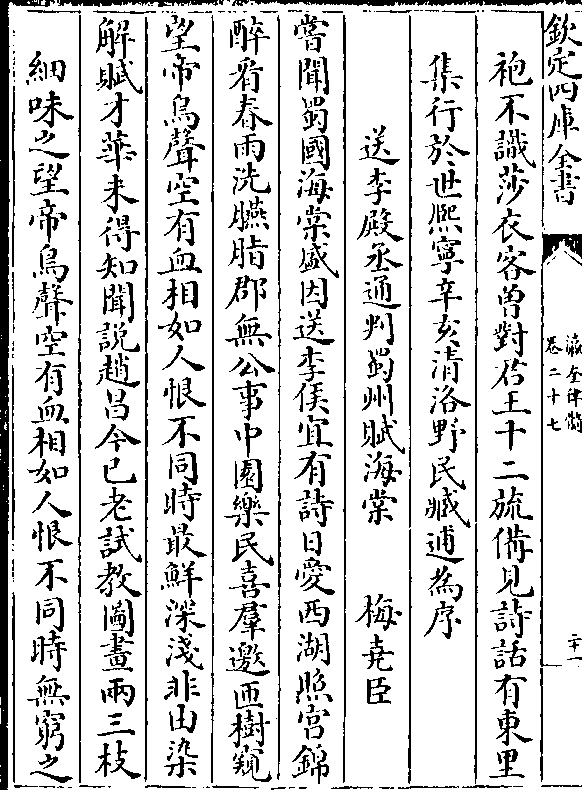 欽定四庫全書
瀛奎律髓
卷二十七
二十一
袍不識莎衣客曽對君王十二旒備見詩話有東里
集行於世熙寧辛亥清洛野民臧逋為序
送李殿丞通判蜀州賦海棠 梅堯臣
嘗聞蜀國海棠盛因送李侯宜有詩日愛西湖照宫錦
醉看春雨洗臙脂郡無公事中園樂民喜羣邀匝樹窺
望帝鳥聲空有血相如人恨不同時最鮮深淺非由染
解賦才華未得知聞說趙昌今已老試教圖畫兩三枝
細味之望帝鳥聲空有血相如人恨不同時無窮之